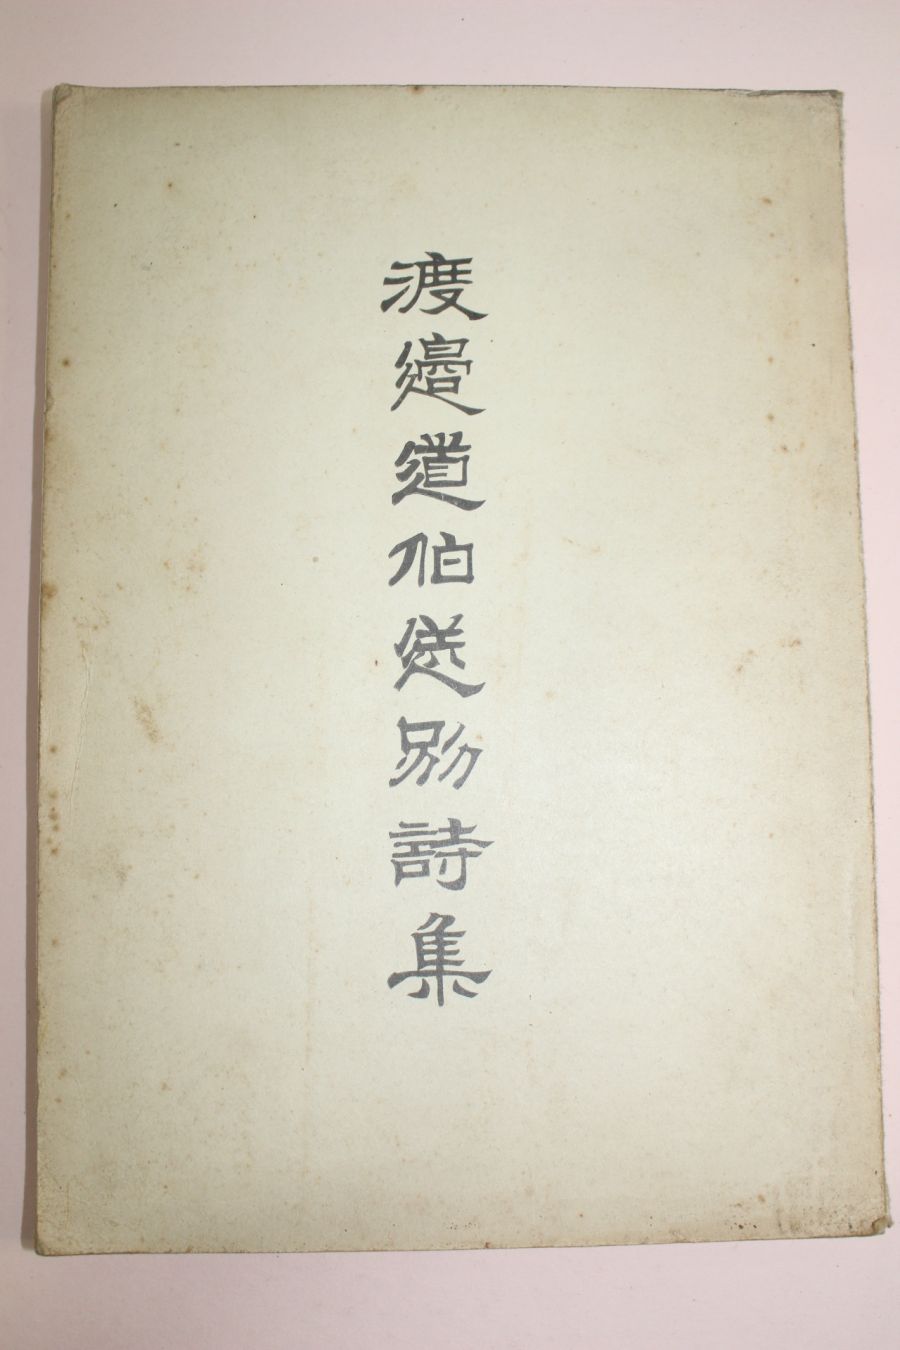 渡邉道伯送別詩集